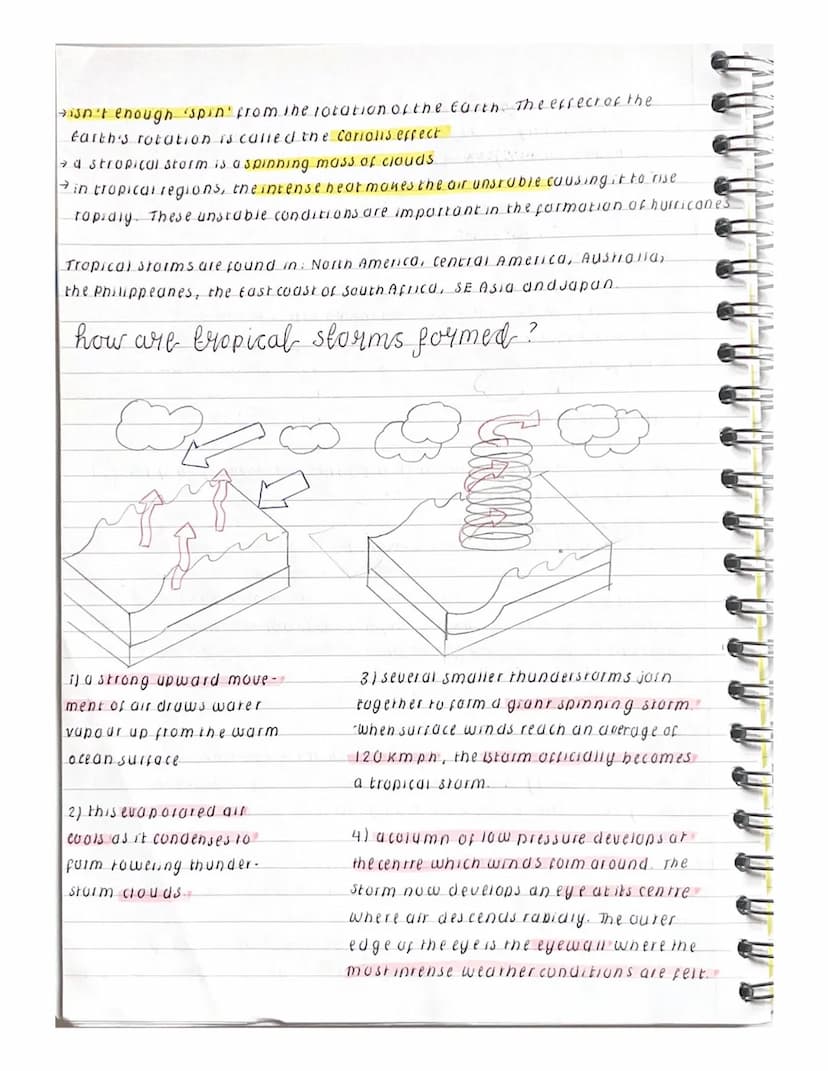 → isn't enough 'spin' from the rotation of the Earth. The effect of the
Earth's rotation is called the Coriolis effect
→ a stropical storm is a spinning mass of clouds
→ in tropical regions, the intense heat makes the air unstable causing it to rise
rapidly. These unstable conditions are important in the formation of hurricanes
Tropical storms are found in: North America, Central America, Australia,
the Philippeanes, the East coast of South Africa, SE Asia and Japan.
how are tropical storms formed?
1) a strong upward move-
ment of air draws water
vapour up from the warm
ocean surface
2) this evaporated air
cools as it condenses to
form towering thunder-
storm clouds.
3) several smaller thunderstorms join
together to form a giant spinning storm.
When surface winds reach an average of
120 kmph, the storm officially becomes
a tropical storm.
4) a column of low pressure develops at
the centre which winds form around. The
storm now develops an eye at its centre
where air descends rapidly. The outer
edge of the eye is the eyewall where the
most intense weather conditions are felt.